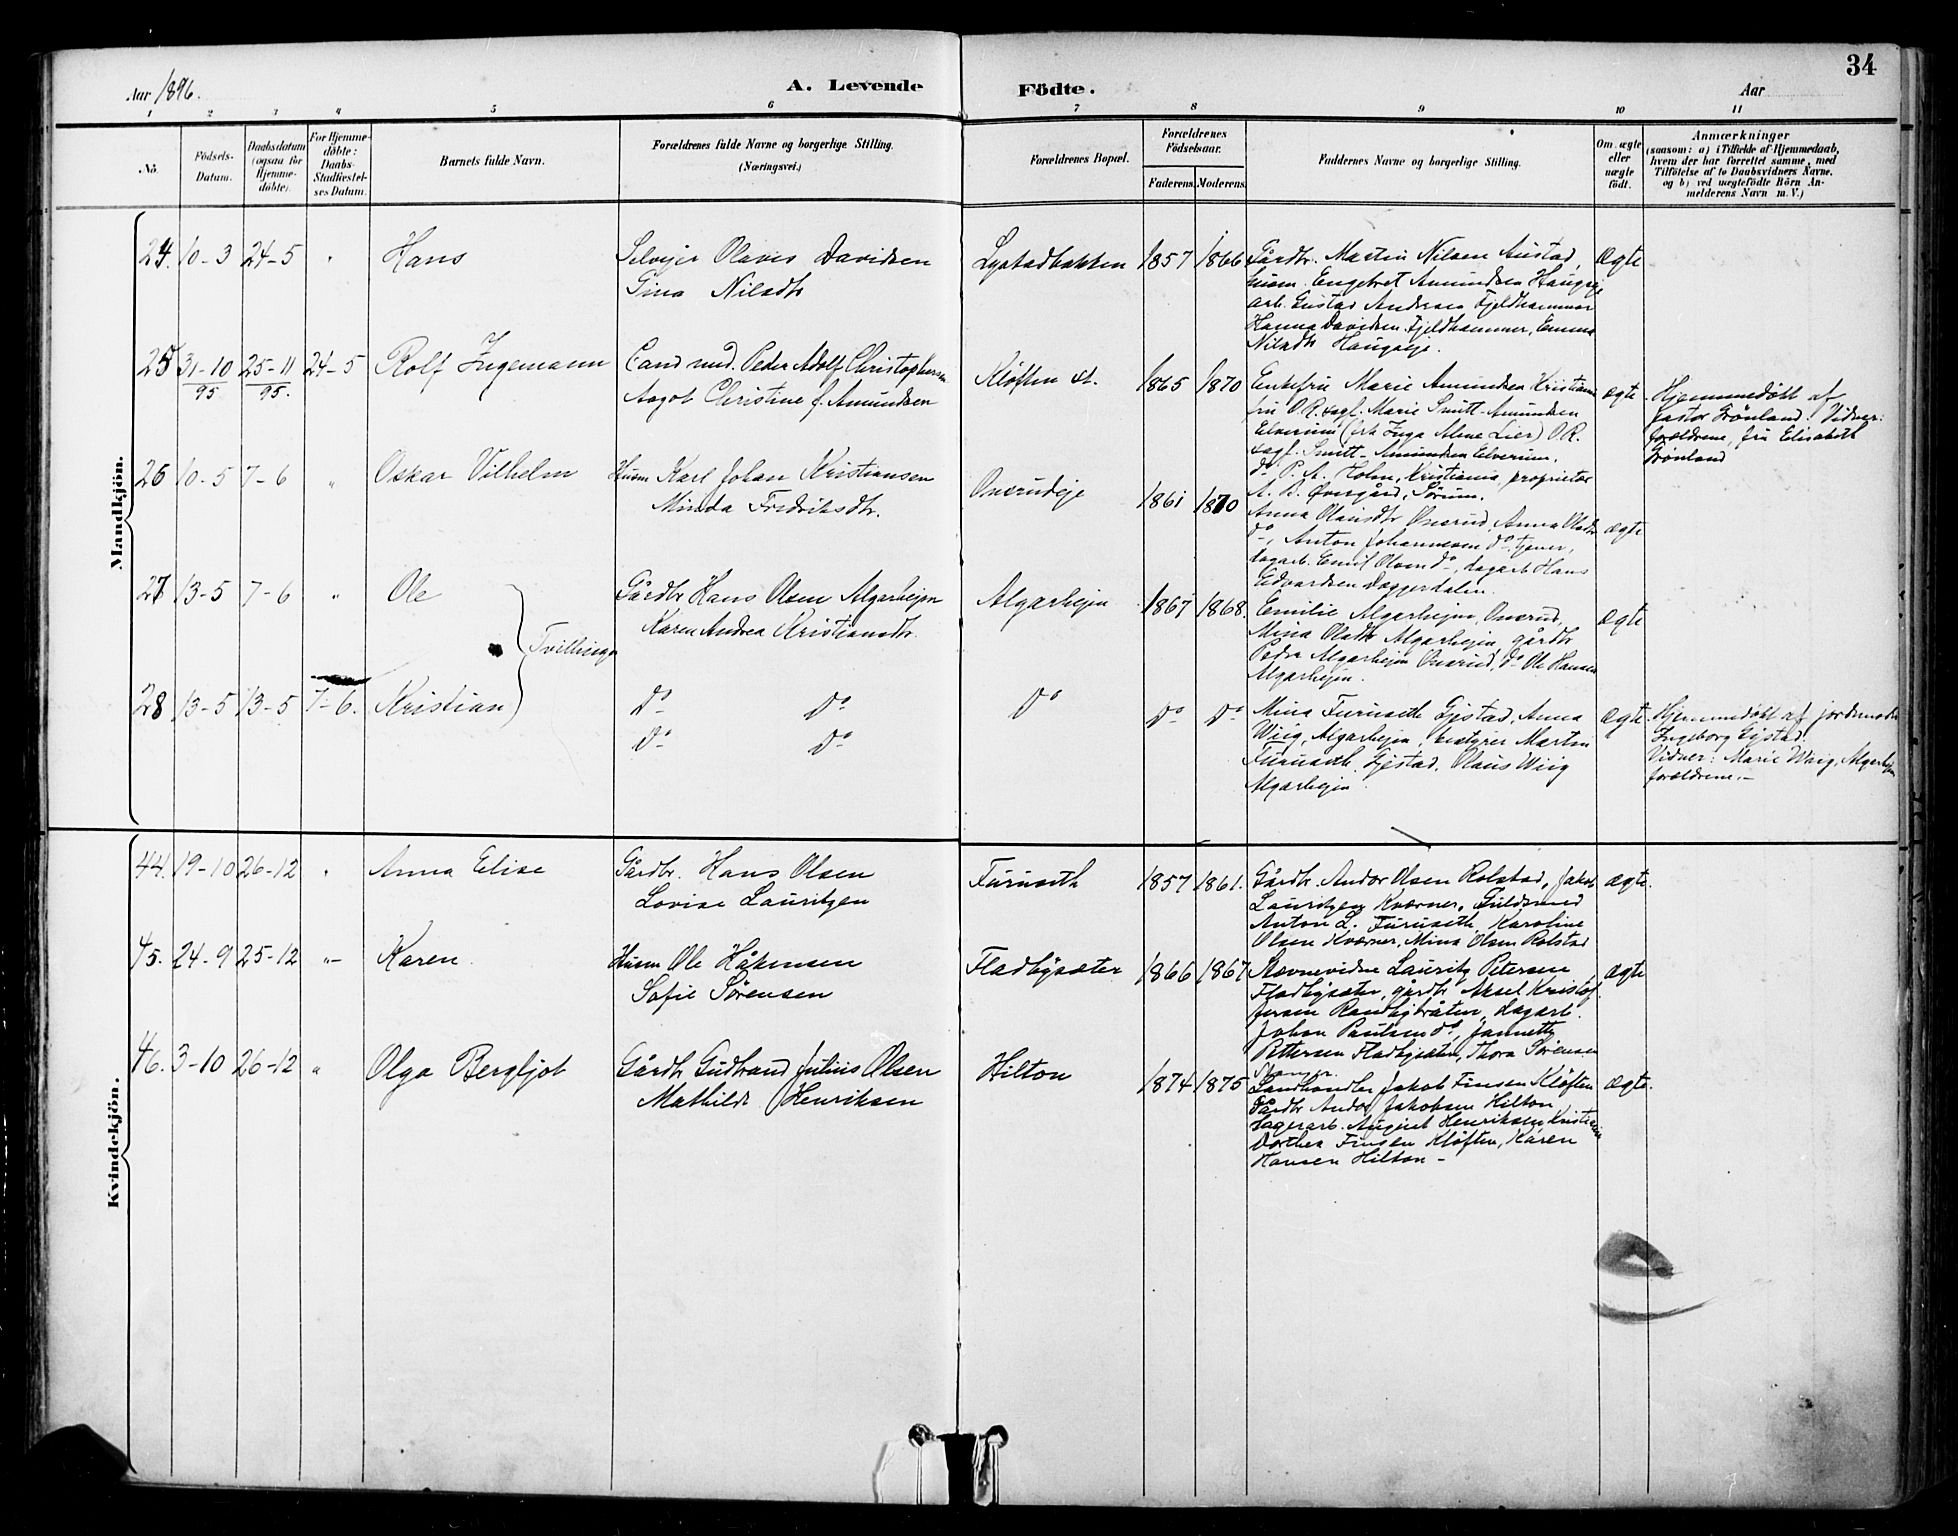 34
Aar 1896.
A. Levende Födte.
Aar
1 2 3 4 5 6 7 8 9 10 11
No.
Födsels-
Datum.
Daabsdatum
(ogsaa for
Hjemme-
döbte).
For Hjemme-
döbte:
Daabs-
Stadfæstel-
ses Datum.
Barnets fulde Navn.
Forældrenes fulde Navne og borgerlige Stilling.
(Næringsvei.)
Forældrenes Bopæl.
Forældrenes
Födselsaar.
Faderens. Moderens.
Faddernes Navne og borgerlige Stilling.
Om ægte
eller
uægte
födt.
Anmærkninger
(saasom: a) i Tilfælde af Hjemmedaab,
hvem der har forrettet samme, med
Tilföielse af to Daabsvidners Navne,
og b) ved uægtefödte Börn An-
melderens Navn m. V.)
Mandkjön.
24. 10-3 24-5 " Hans
Selvejer Olavis Davidsen
Gina Nilsdtr
Lystadbakken 1857 1866
Gårdbr. Martin Nilsen Austad,
husm. Engebret Amundsen Haugeje
arb. Gustav Andersen Fjeldhammer
Hanna Davidsen Fjeldhammer, Emma
Nilsdtr Haugeje.
Ægte
25 31-10 95 25-11 95. 24-5 Rolf Ingemann
Cand med. Peder Adolf Christophersen
Aagot Christine f. Amundsen
Kløften st. 1865 1870
Enkefru Marie Amundsen Kristiania
fru O.R.sagf. Marie Smitt-Amundsen
Elverum (frk Inga Aline Lier) O.R.
sagf. Smitt-Amundsen Elverum,
do P. A. Holm, Kristiania, proprietær
A. B. Øvergård, Sørum.
ægte
Hjemmedøbt af
pastor Grönland. Vidner:
forældrene, fru Elisabeth
Grönland
26 10-5 7-6 " Oskar Vilhelm
Husm Karl Johan Kristiansen
Minda Fredriksdtr.
Onsrudeje 1861 1870
Anna Olausdtr Onsrud, Anna Olsdtr
do, Anton Johannesen do tjener,
dagarb. Emil Olsen do, dagarb Hans
Edvardsen Daggerdalen.
ægte
27 13-5 7-6 " Ole
Tvillinger
Gårdbr Hans Olsen Algarhejm
Karen Andrea Kristiansdtr.
Algarhejm 1867 1868.
Emilie Algarhejm, Onsrud,
Mina Olsdtr Algarhejm, gårdbr
Peder Algarhejm Onsrud, do Ole Hansen
Algarhejm.
Ægte
28 13-5 13-5 7-6. Kristian
do do
do do
do do do
Mina Furuseth Gjestad, Anna
Wiig, Algarhejm, bestyrer Martin
Furuseth Gjestad, Olaus Wiig
Algarhejm.
Ægte
Hjemmedøbt af jordmoder
Ingeborg Gjestad.
Vidner: Marie Wiig, Algarhejm
forældrene.-
Kvindekjön.
44. 19-10 26-12 " Anna Elise
Gårdbr. Hans Olsen
Lovise Lauritzen
Furuseth 1857 1861.
Gårdbr. Andor Olsen Rolstad, Jakob
Lauritzen Kværner, Guldsmed
Anton L. Furuseth, Karoline
Olsen Kværner, Mina Olsen Rolstad
ægte.
45. 24-9 25-12 "- Karen.
Husm Ole Håkensen
Sofie Sørensen
Fladbysæter 1866 1867
Stevnevidne Lauritz Petersen
Fladbysæter, gårdbr Aksel Kristof
fersen Randbybråten, dagarb.
Johan Paulsen do, Jannette
Pettersen Fladbysæter, Thora Sørensen
Stanger.
ægte
46. 3-10 26-12 " Olga Bergljot
Gårdbr Gudbrand Julius Olsen
Mathilde Henriksen
Hilton 1874 1875
Landhandler Jakob Finsen Kløften
Gårdbr Andor Jakobsen Hilton
Lagerarb. August Henriksen Kristiania
Dorthea Finsen Kløften, Karen
Hansen Hilton-
ægte.